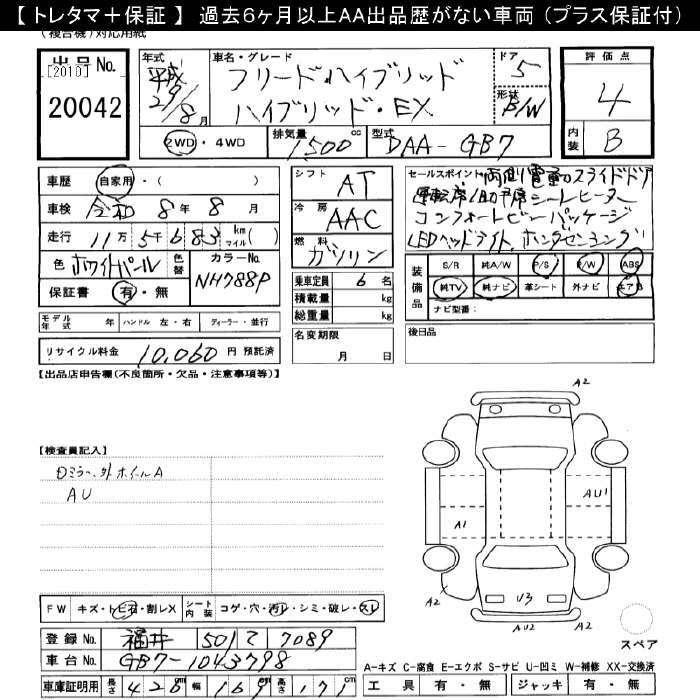 【 トレタマ＋保証 】 過去６ヶ月以上ＡＡ出品歴がない車両 （プラス保証付）
(複合機)対応用紙
出品 No.
[2010]
20042
年式
平成29/8月
車名・グレード
フリードハイブリッド
ハイブリッド・EX
ドア
5
形状
B/W
評価点
4
内装
B
2WD・4WD
排気量
1500cc
型式
DAA-GB7
車歴 自家用・( )
車検 令和 8年 8月
走行 11万 5千 683 km マイル( )
色 ホワイトパール
色替
カラーNo.
NH788P
保証書 有・無
シフト AT
冷房 AAC
燃料 ガソリン
乗車定員 6名
積載量 kg
総重量 kg
セールスポイント 両側電動スライドドア
運転席/助手席シートヒーター
コンフォートビューパッケージ
LEDヘッドライト、ホンダセンシング
装備品
S/R 純A/W P/S P/W ABS
純TV 純ナビ 革シート 外ナビ エアB
ナビ型番:
モデル年式 年 ハンドル 左・右 ディーラー・並行
リサイクル料金 10,060 円 預託済
名変期限
月 日
後日品
【出品店申告欄(不良箇所・欠品・注意事項等)】
【検査員記入】
Dミラー、外ホイールA
AU
A2
AU1
A1
A2
U3
A2
AU2
スペア
FW キズ・トビ石・割レX シート内装 コゲ・穴・汚レ・シミ・破レ・スレ
登録 No. 福井 501 て 7089
車台 No. GB7-1043798
車庫証明用 長さ 426cm 幅 169cm 高さ 171cm
A-キズ C-腐食 E-エクボ S-サビ U-凹ミ W-補修 XX-交換済
工具 有・無 ジャッキ 有・無